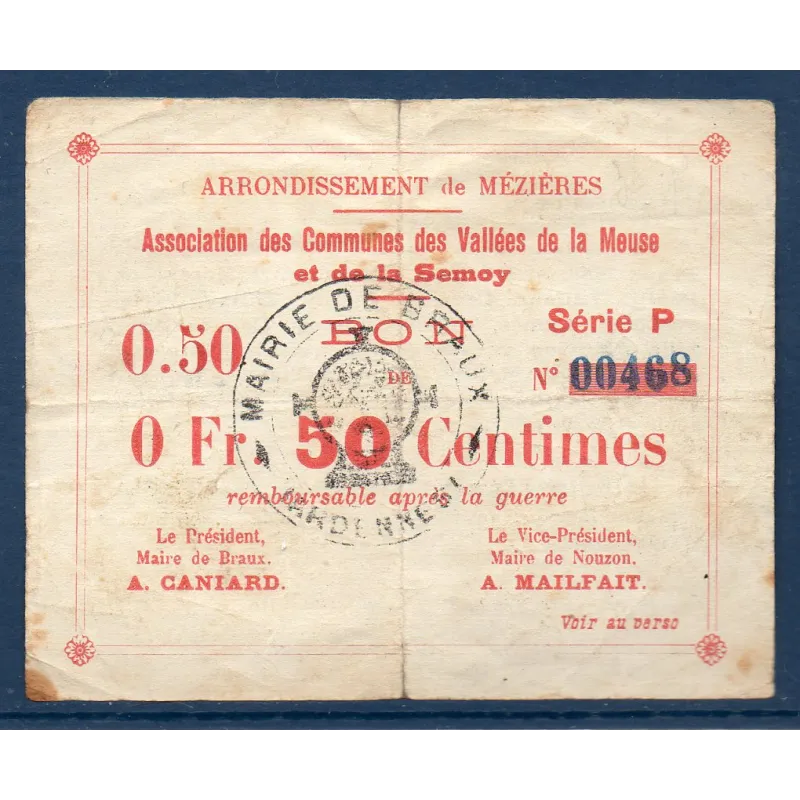 ARRONDISSEMENT de MÉZIÈRES
Association des Communes des Vallées de la Meuse
et de la Semoy
0.50
BON
DE
Série P
N° 00468
0 Fr. 50 Centimes
remboursable après la guerre
Le Président,
Maire de Braux.
A. CANIARD.
Le Vice-Président,
Maire de Nouzon.
A. MAILFAIT.
Voir au verso
MAIRIE DE BRAUX
(ARDENNES)